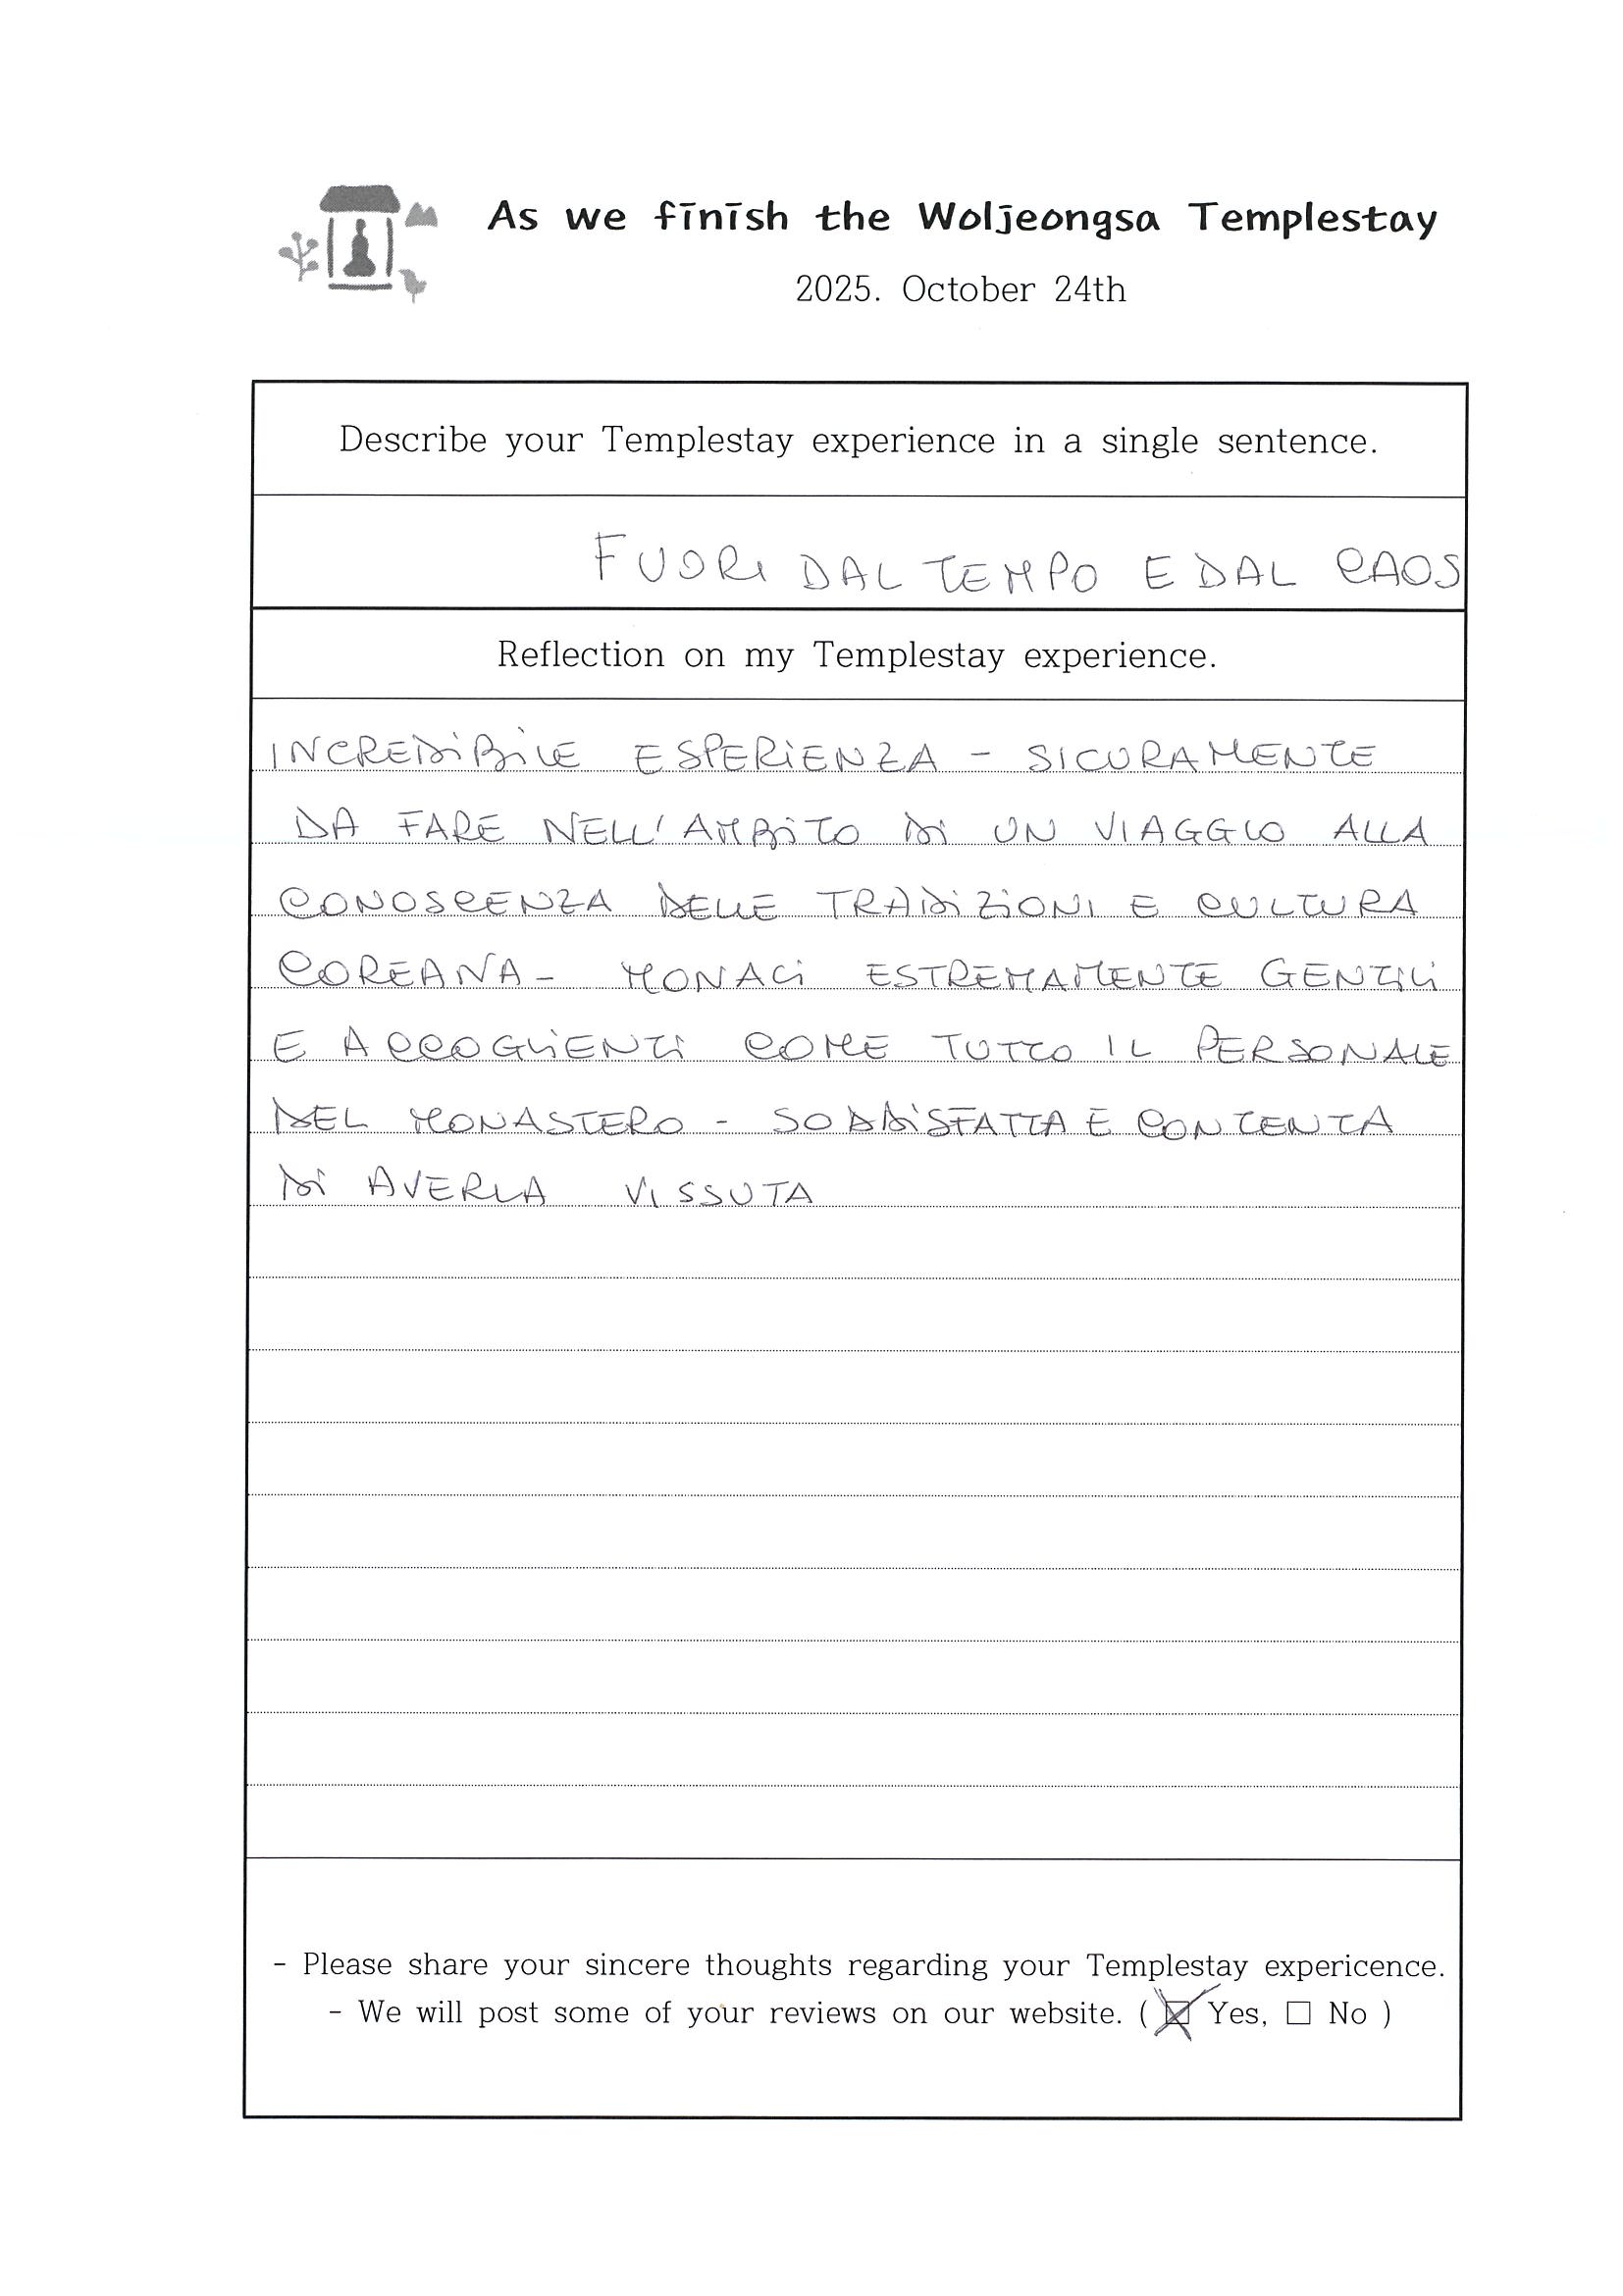 As we finish the Woljeongsa Templestay
2025. October 24th
Describe your Templestay experience in a single sentence.
FUORI DAL TEMPO E DAL CAOS
Reflection on my Templestay experience.
INCREDIBILE ESPERIENZA - SICURAMENTE
DA FARE NELL'AMBITO DI UN VIAGGIO ALLA
CONOSCENZA DELLE TRADIZIONI E CULTURA
COREANA - MONACI ESTREMAMENTE GENTILI
E ACCOGLIENTI COME TUTTO IL PERSONALE
DEL MONASTERO - SODDISFATTA E CONTENTA
DI AVERLA VISSUTA
- Please share your sincere thoughts regarding your Templestay expericence.
- We will post some of your reviews on our website. ( ☒ Yes, ☐ No )